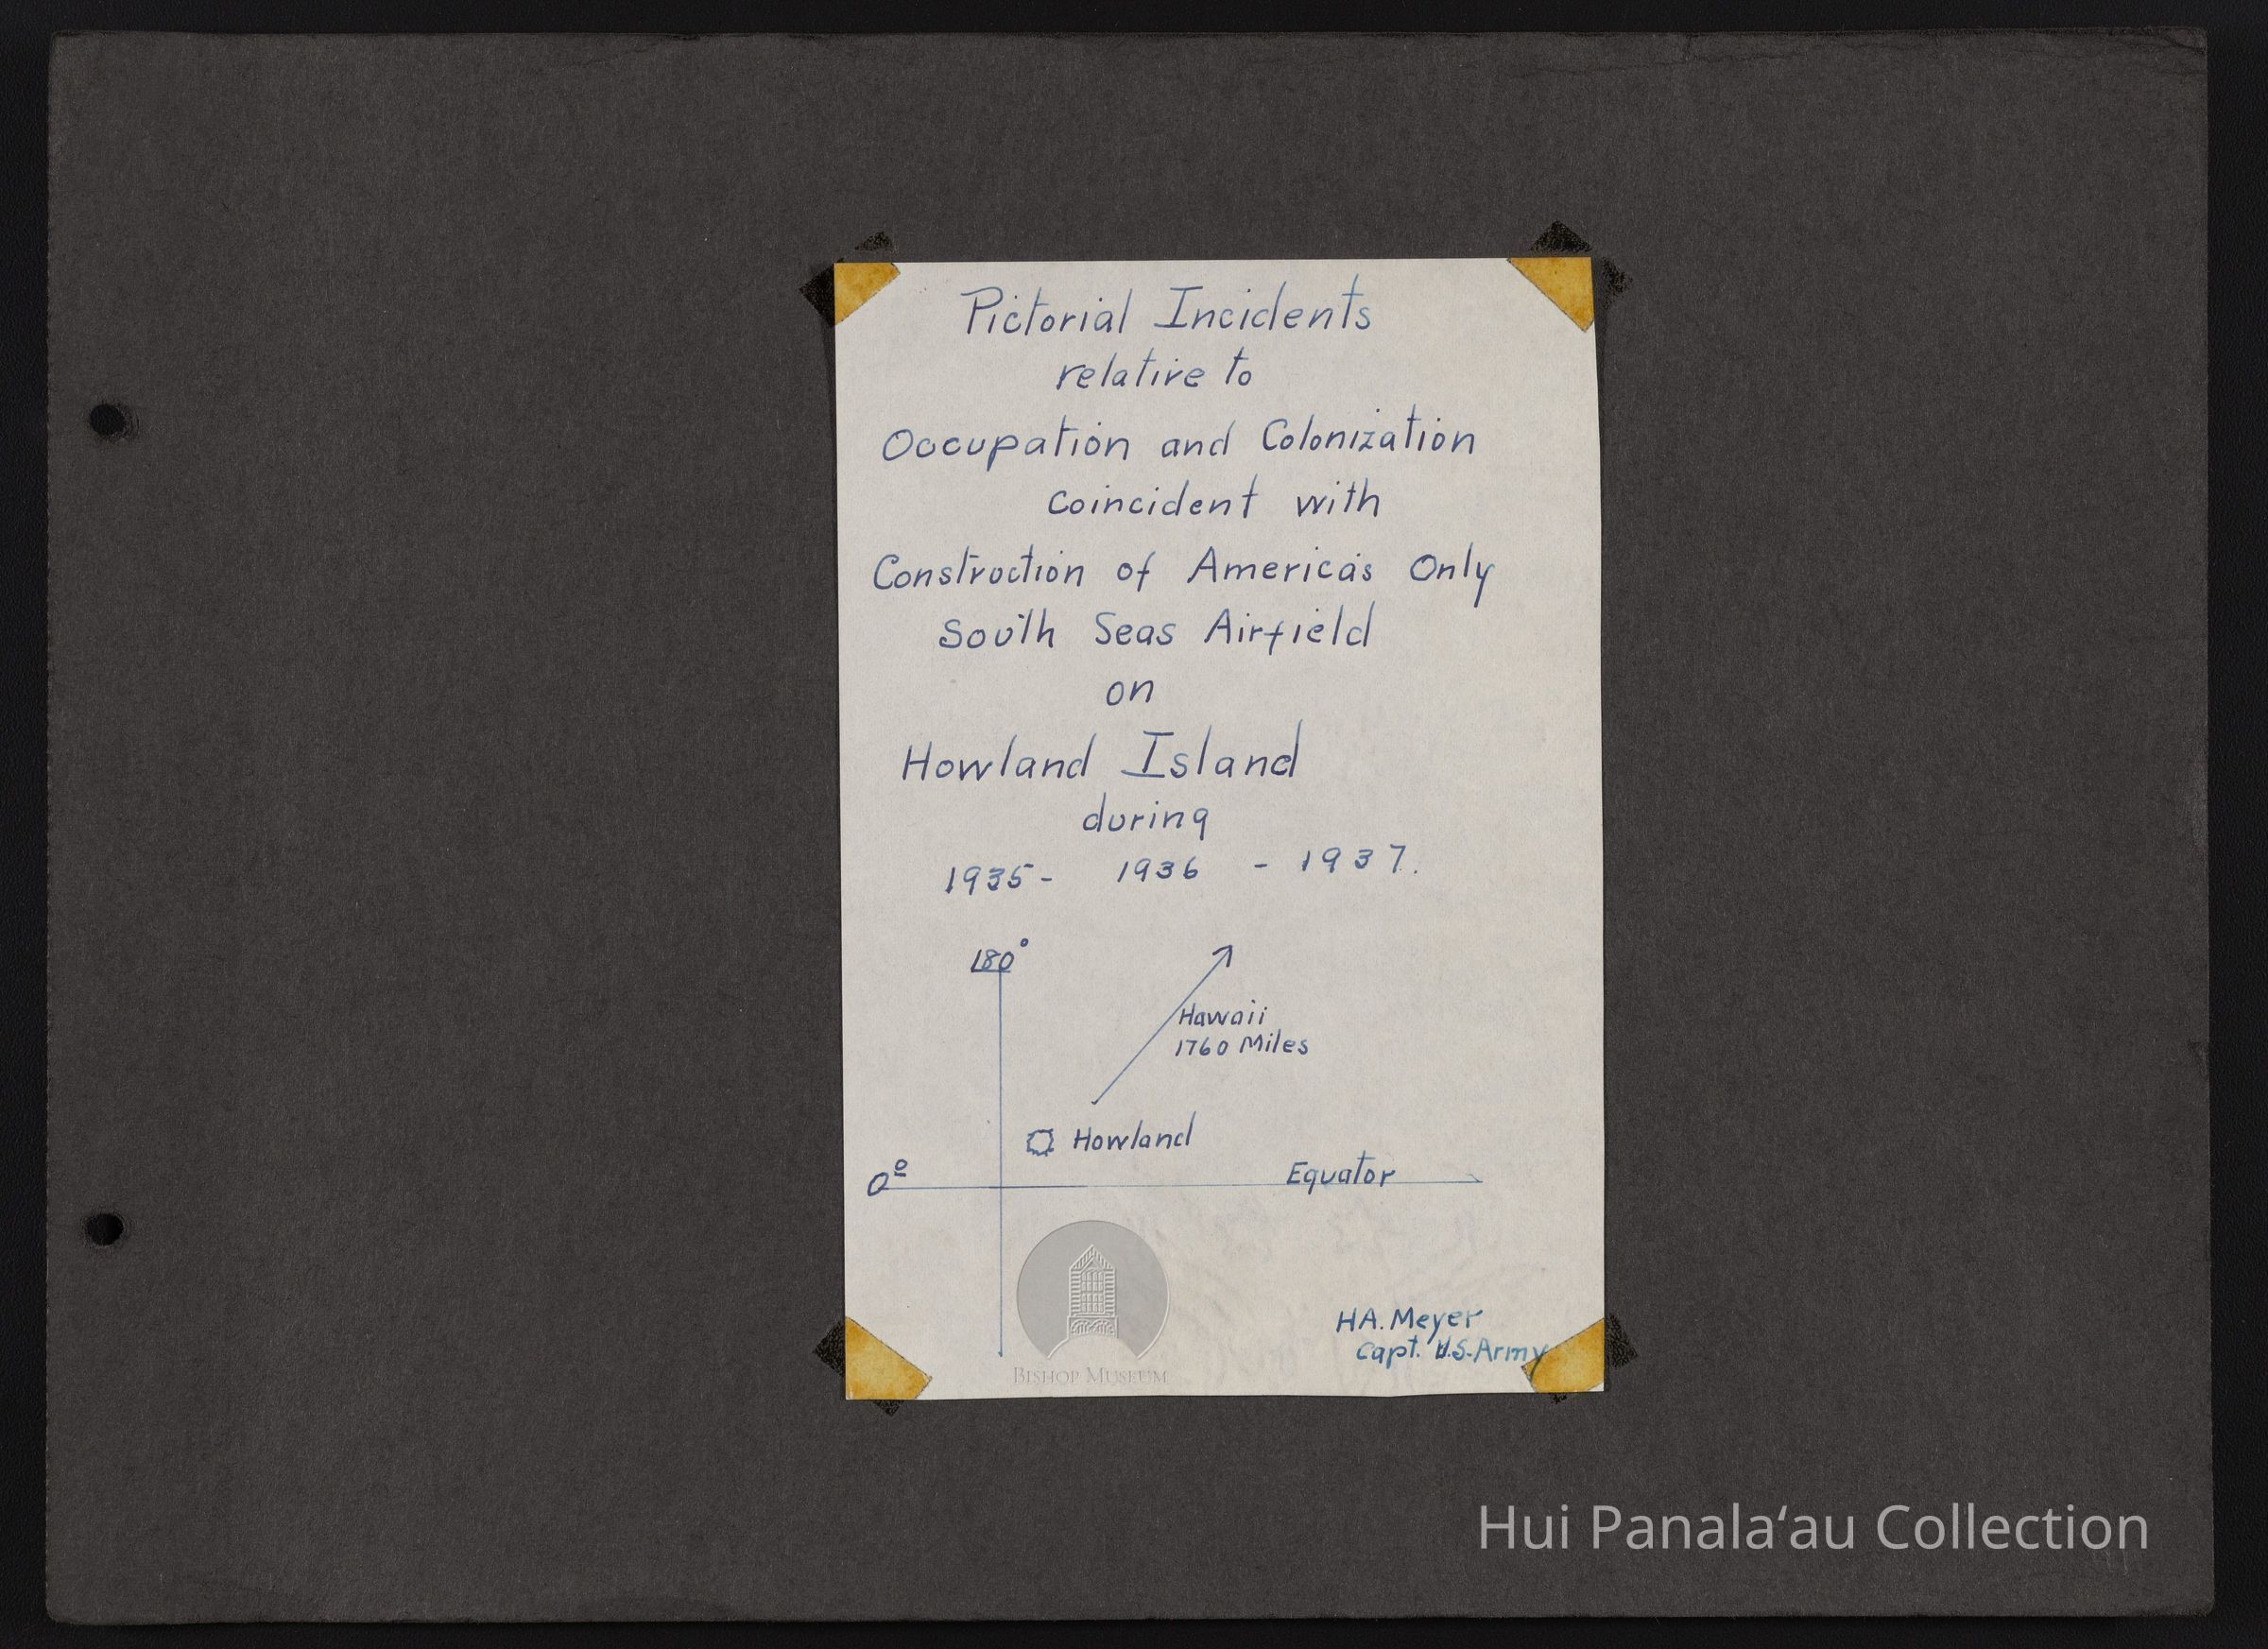 Pictorial Incidents
relative to
Occupation and Colonization
Coincident with
Construction of America's Only
South Seas Airfield
on
Howland Island
during
1935 - 1936 - 1937.
180°
Hawaii
1760 Miles
Howland
0°
Equator
H.A. Meyer
Capt. U.S. Army
BISHOP MUSEUM
Hui Panalaʻau Collection